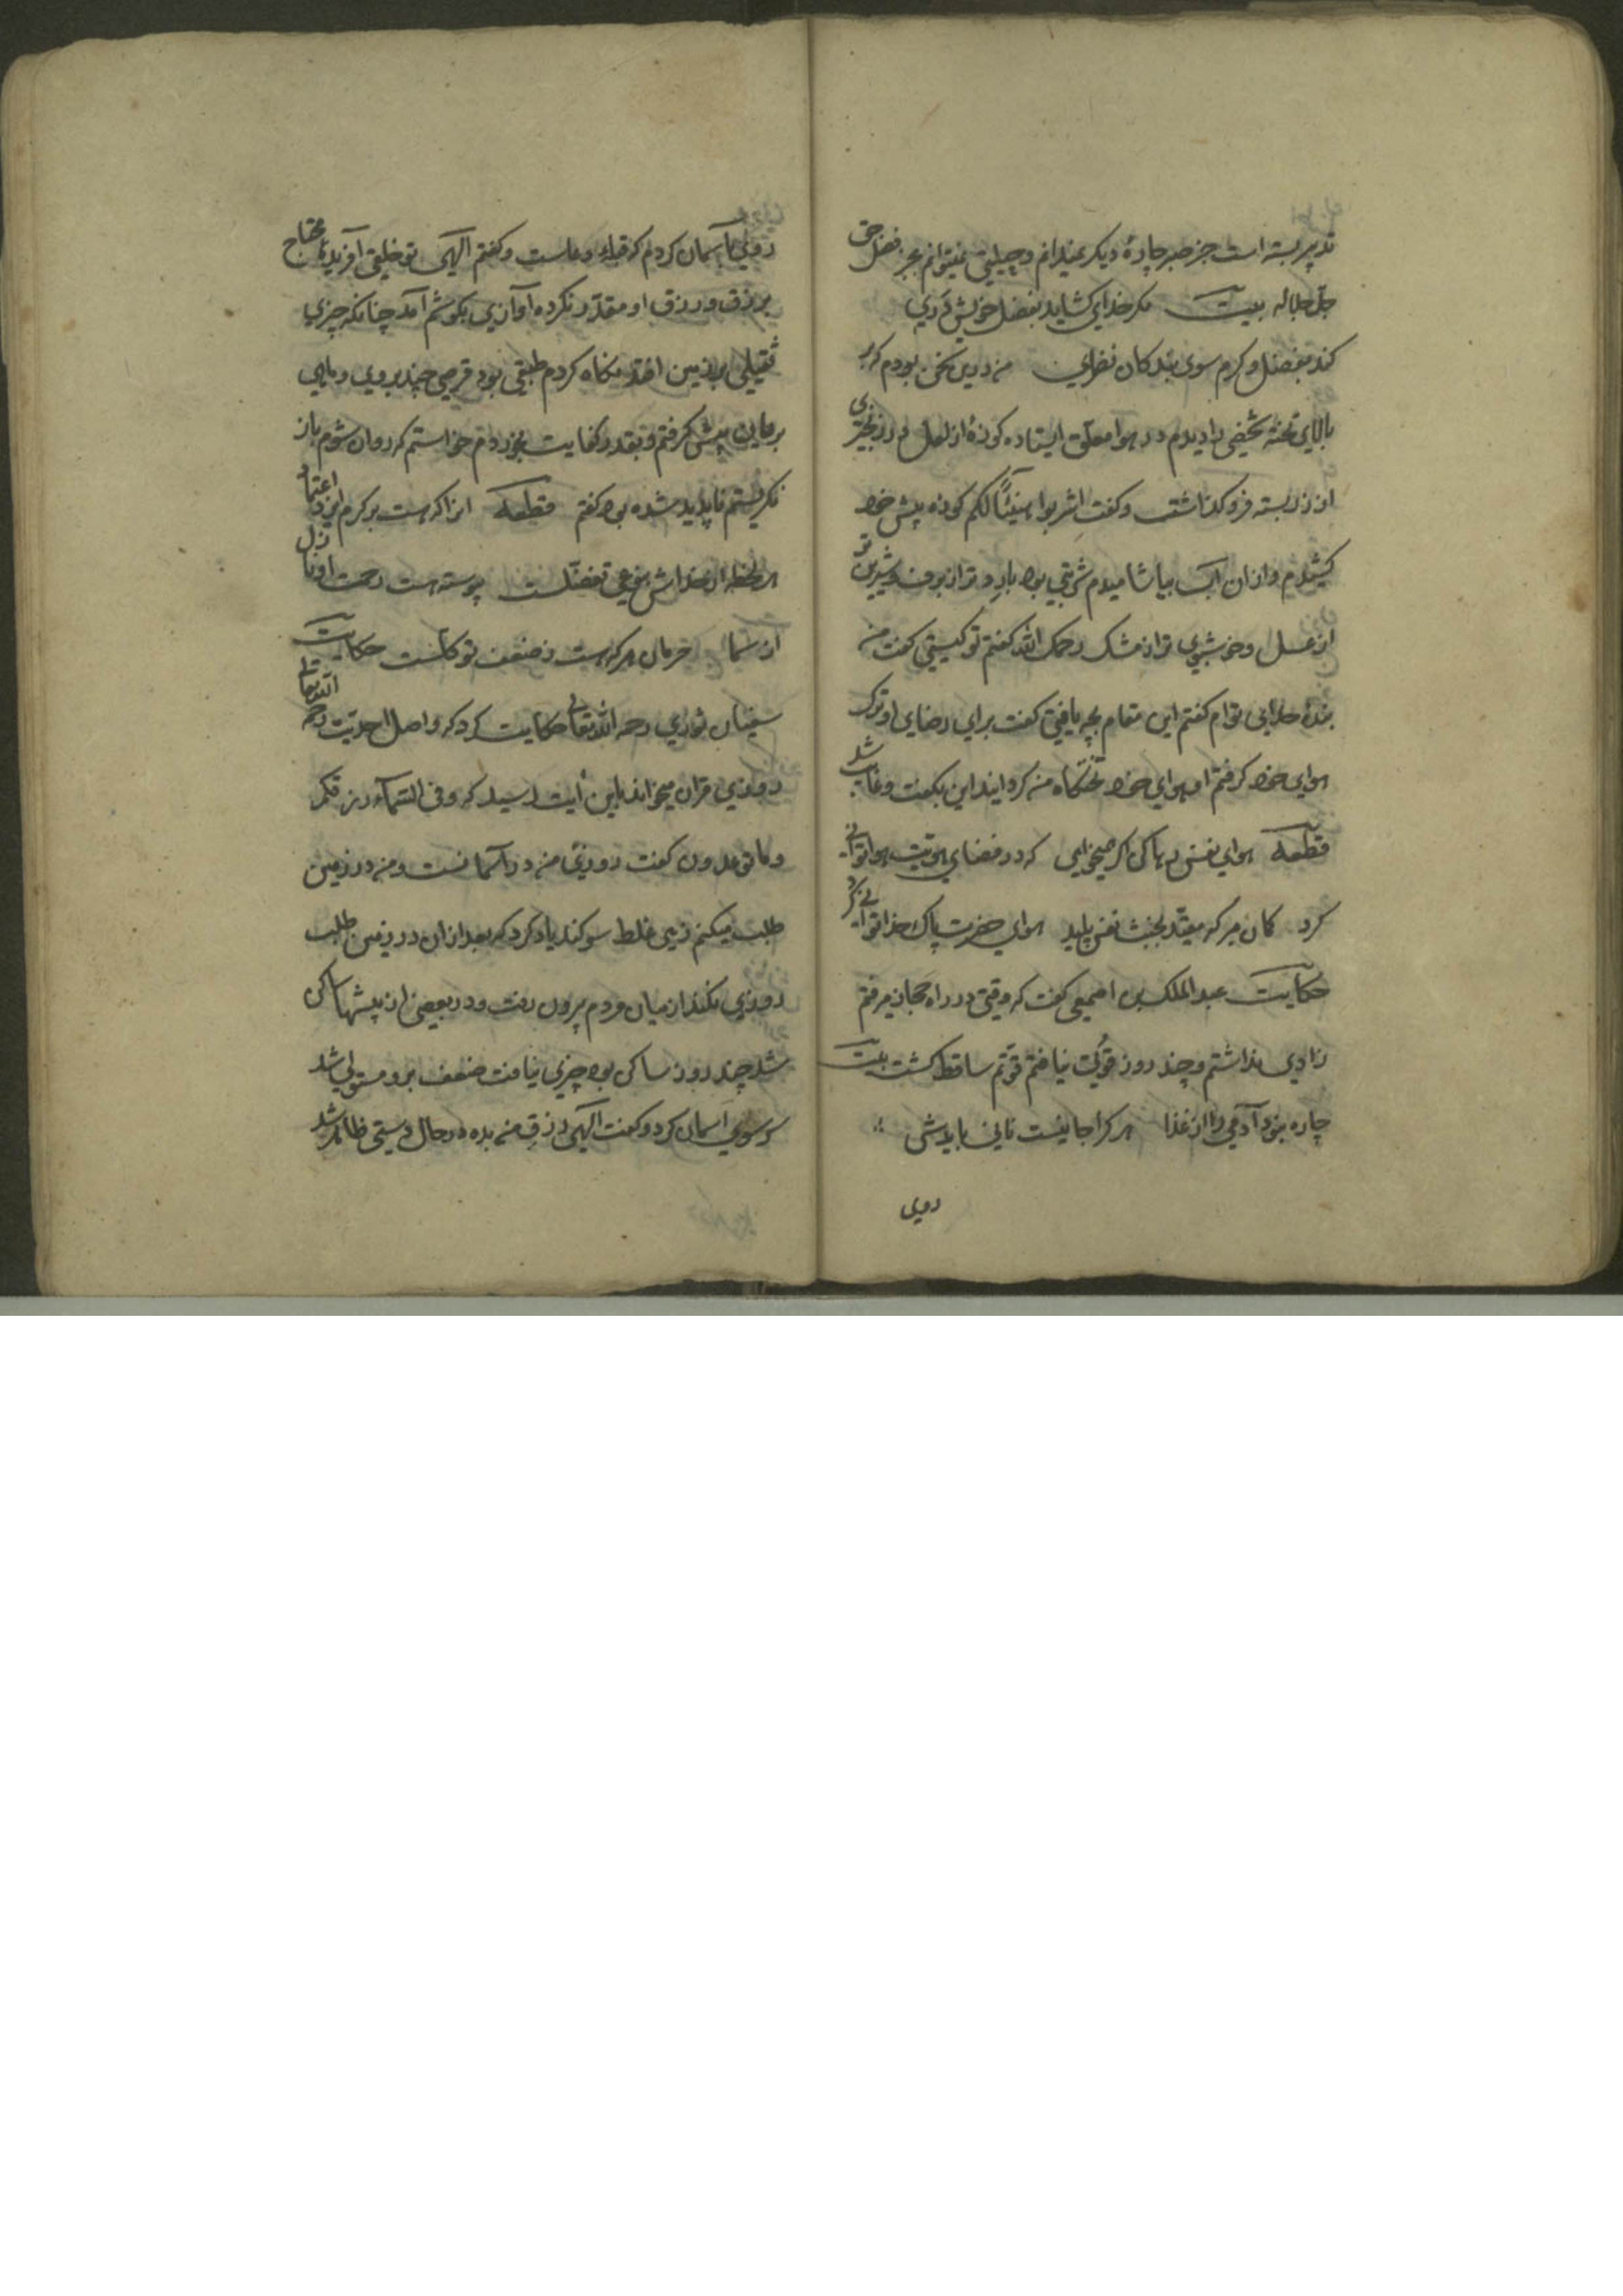 تدپیر بسته است جز صبر چارهٔ دیکر نمیدانم و حیلتی نمیتوانم بجز فضل حق
جلّ جلاله بیت مکر خدای کشاید بفضل خویش دری
کند بفضل و کرم سوی بندکان نظری من درین سخن بودم که بر
بالای تخته شخصی را دیدم در هوا معلّق ایستاده کوزهٔ از لعل در زنجیری
از زر بسته فرو کذاشت و کفت اشربوا هنیئًا لکم کوزه پیش خود
کشیدم و از ان آب بیاشامیدم شربتی بود بارد تر از برف و شیرین تر
از عسل و خوشبوی تر از مشک رحمک الله کفتم تو کیستی کفت من
بندهٔ خدای توام کفتم این مقام بچه یافتی کفت برای رضای او ترک
هوای خود کرفتم او هوای خود تختکاه من کردانید این بکفت و غایب شد
قطعه هوای نفس رها کن اکر میخواهی که در فضای هویت هوا توانی
کرد کمان مبر که مقیّد بخبث نفس پلید هوای حضرت پاک خدا توانی کرد
حکایت عبد الملک بن اصمعی کفت که وقتی در راه حجاز میرفتم
زادی نداشتم و چند روز قوتی نیافتم قوّتم ساقط کشت بیت
چاره نبود آدمی را از غذا هر کرا جانیست نانی بایدش
روی
روی بآسمان کردم که قبلهٔ دعاست و کفتم الهی تو خلقی آفریدهٔ محتاج
برزق و رزق او مقدّر نکرده آوازی بکوشم آمد چنانکه چیزی
ثقیلی بر زمین افتد نکاه کردم طبقی بود قرصی چند بروی و ماهی
بریان پیش کرفتم و بقدر کفایت بخوردم خواستم که روان شوم باز
نکریستم ناپدید شده بود کفتم قطعه انرا که هست بر کرم ایزد اعتماد
هر لحظه از خداش بنوعی تفضّلست پیوسته هست رحمت او نازل
از سما حرمان هر که هست ز ضعف توکلست حکایت
سفیان ثوری رحمه الله تعالی حکایت کرد که واصل احدیت رحمه الله تعالی
روزی قران میخواند باین آیت رسید که وفی السّمآء رزقکم
وما توعدون کفت روزی من در آسمانست و من در زمین
طلب میکنم زهی غلط سوکند یاد کرد که بعد از ان در زمین طلب
روزی نکند از میان مردم برون رفت و در بعضی از پیشها ساکن
شد چند روز ساکن بود چیزی نیافت ضعف برو مستولی شد
سر سوی آسمان کرد و کفت الهی رزق من بده در حال دستی ظاهر شد